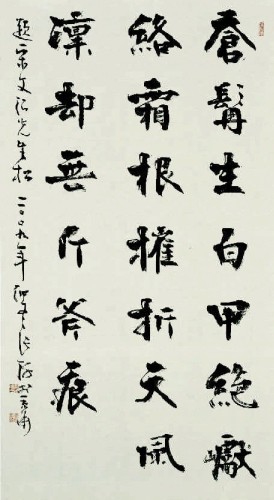 蒼髯生白甲絶巘
絡霜根摧折天風
凜却無斤斧痕
題宋文治先生松
二〇〇九年